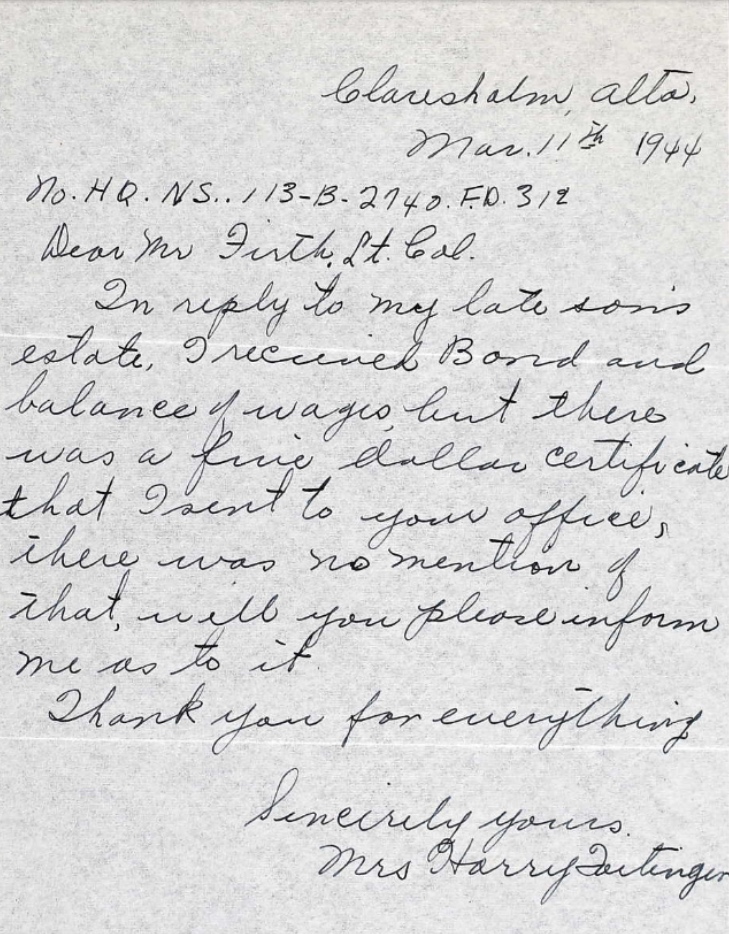 Claresholm, Alta,
Mar. 11th 1944
No. HQ. NS.. 113-B-2740. F.D. 312
Dear Mr Firth, Lt. Col.
In reply to my late sons
estate, I received Bond and
balance of wages, but there
was a five dollar certificate
that I sent to your office,
there was no mention of
that, will you please inform
me as to it.
Thank you for everything
Sincirely yours.
Mrs Harry